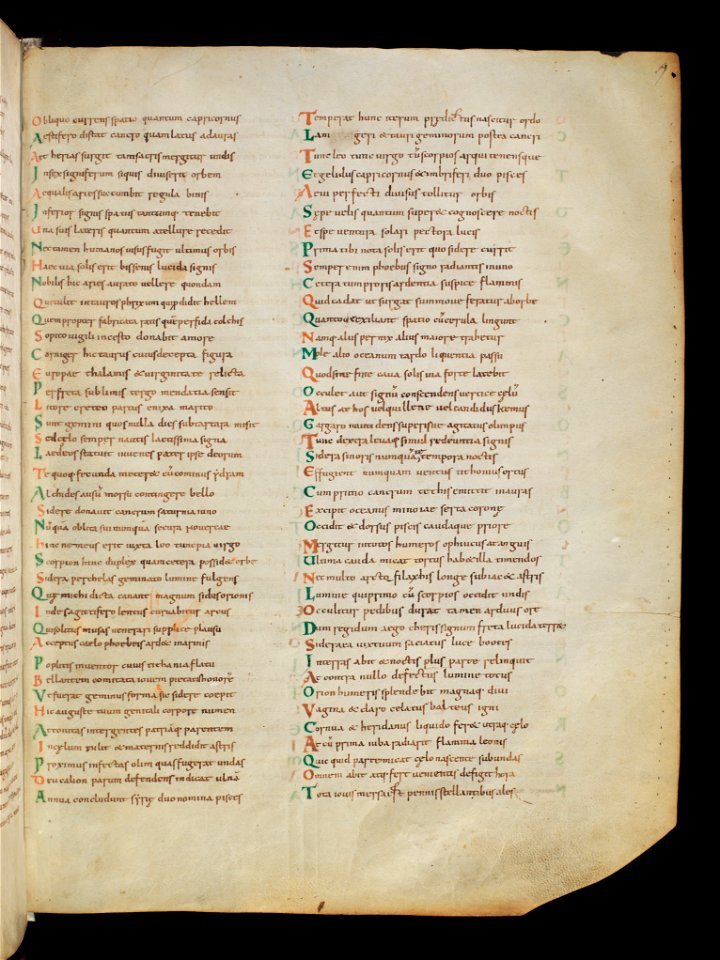 Obliquo currens spatio quantum capricornus
Aestifero distat cancro quam latus ad auras
Aetherias surgit tam sacris mergitur undis
In sex signiferum signis diviserit orbem
Aequalis aries succumbit regula binis
Inferior signis spatiis tantumque tenebit
Una suis lateris quantum a tellure recedit
Nec tamen humanos visus fugit ultimus orbis
Haec via solis erit bissenis lucida signis
Nobilis hic aries aurato vellere quondam
Qui tulit in tauros phrixum qui prodidit hellem
Quem propter fabricata ratis quem perfida colchis
Sopito vigili incesto donabit amore
Corniger hic taurus cuius decepta figura
Europae thalamis et virginitate relicta
Per freta sublimis tergo mendatia sensit
Litore oreteo partus enixa marito
Sunt gemini quos nulla dies sub tartara misit
Sed celo semper nautis laetissima signa
Laedeos statuit iuvenes pater ipse deorum
Te quoque fecunda meteret cum cominus ydram
Alchides ausum morsu contingere bello
Sidere donavit cancrum saturnia iuno
Nunquam oblita sui nunquam secura novercae
Hinc nemeus erit iuxta leo tunc pia virgo
Scorpion hinc duplex quam cetera possidet orbe
Sidera per chelas geminato lumine fulgens
Quem michi dicta canant magnum sidus orionis
Inde sagittifero lentus curvabitur arcus
Qui solitus musas venerari supplice plausu
Acceptus caelo phoebeis ardet in armis
Poplitis inventor cuius
Bellantem comitata iovem pietatis honore
Vel fuerat geminus forma sic sidere coepit
Hic auguste tuum genitali corpore numen
Attonitas inter gentes patriamque parentem
In caelum tulit et maternis reddidit astris
Proximus infestas olim quas fugerat undas
Deucalion parum defendens indicat ulna
Annua concludunt syriae duo nomina pisces
Temperat hunc iterum praedictus nascitur ordo
Lanigeri et tauri geminorum postea cancri
Tunc leo tunc virgo tum scorpios arquitenensque
Et gelidus capricornus et imbrifer duo pisces
Aevi perfecti divisus tollitur orbis
Saepe velis quantum superet cognoscere noctis
Et spe ventura solari pectora lucis
Prima tibi nota solis erit quo sidere currit
Semper enim phoebus signo radiantis in uno
Cetera tum propriis ardentia suspice flammis
Quid cadat ut surgat summove feratur ab orbe
Quantove exiliant spatio cum cerula lingunt
Namque alius pernix alius maiore trahetur
Mole alio oceanum tardo liquentia passu
Quod si nefine cava solis ina forte latebit
Occulet aut signum conscendens vertice caelum
Altus at hos vel quillene vel candidus hemus
Gargaro nam densi superisue agitatus olimpus
Tunc dextera levaque simul redeuntia signis
Sidera si noris nunquam te tempora noctis
Effugient nunquam venies tithonius ortus
Cum primo cancrum tethis emittit in auras
Excipit oceanus minoiae serta coronae
Occidit et dorsus piscis caudaque priore
Mergitur in totos humeros ophiucus at anguis
Ultima cauda micat tortus hab et illa timendos
Nec multo arctum filaxhis longe subiacet astris
Lumine qui primo cum scorpios occidit undis
Occulitur pedibus durat tamen arduus ort
Dum regidum aegocheris signum freta lucida terrae
Siderea vixtuum saciatus luce bootes
In terras abit et noctis plus parte relinquit
At contra nullo defectus lumine totus
Orion humeris splendebit magnaque divi
Vagina et claro celatus balteus igni
Cornua et heridanus liquido feret utraque caelo
At cum prima iuba radiarit flamma leonis
Quicquid parte micat caelo nascente sub undas
Omnem abit atque fert vementis defigit hora
Tota iovis mersa est pennis stellantibus ales